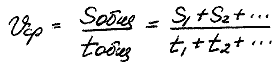 υср = Sобщ / tобщ = S₁ + S₂ + ... / t₁ + t₂ + ...